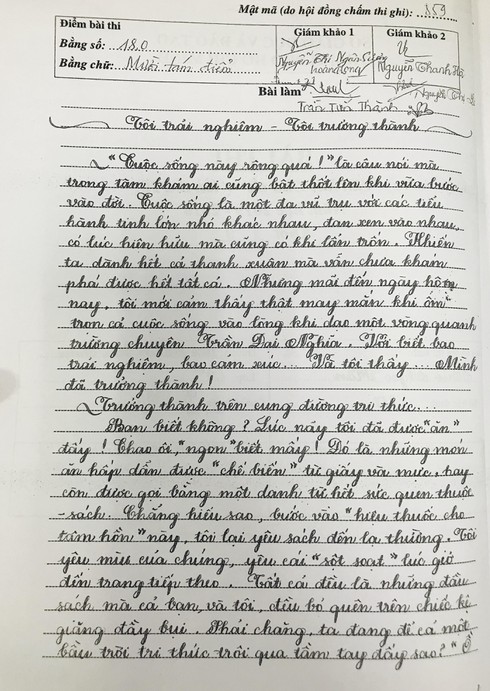 Mật mã (do hội đồng chấm thi ghi): 859
Điểm bài thi
Bằng số: 18.0
Bằng chữ: Mười tám điểm
Giám khảo 1
Nguyễn Thị
Giám khảo 2
Nguyễn Thanh
Bài làm
Trần Tiến Thành
Tôi trải nghiệm - Tôi trưởng thành
"Cuộc sống này rộng quá!" là câu nói mà
trong tâm khảm ai cũng bật thốt lên khi vừa bước
vào đời. Cuộc sống là một đa vũ trụ với các tiểu
hành tinh lớn nhỏ khác nhau, đan xen vào nhau,
có lúc hiện hữu mà cũng có khi lẩn trốn. Khiến
ta dành hết cả thanh xuân mà vẫn chưa khám
phá được hết tất cả. Nhưng mãi đến ngày hôm
nay, tôi mới cảm thấy thật may mắn khi ôm
trọn cả cuộc sống vào lòng khi dạo một vòng quanh
trường chuyên Trần Đại Nghĩa. Với biết bao
trải nghiệm, bao cảm xúc... Và tôi thấy... Mình
đã trưởng thành!
Trưởng thành trên cung đường tri thức...
Bạn biết không? Lúc nãy tôi đã được "ăn"
đấy! Chao ôi, "ngon" biết mấy! Đó là những món
ăn hấp dẫn được "chế biến" từ giấy và mực, hay
còn được gọi bằng một danh từ hết sức quen thuộc
- sách. Chẳng hiểu sao, bước vào "hiệu thuốc cho
tâm hồn" này, tôi lại yêu sách đến lạ thường. Tôi
yêu mùi của chúng, yêu cái "sột soạt" lúc giở
đến trang tiếp theo. Tất cả đều là những đầu
sách mà cả bạn, và tôi, đều bỏ quên trên chiếc kệ
giăng đầy bụi. Phải chăng, ta đang để cả một
bầu trời tri thức trôi qua tầm tay đấy sao? "Ồ